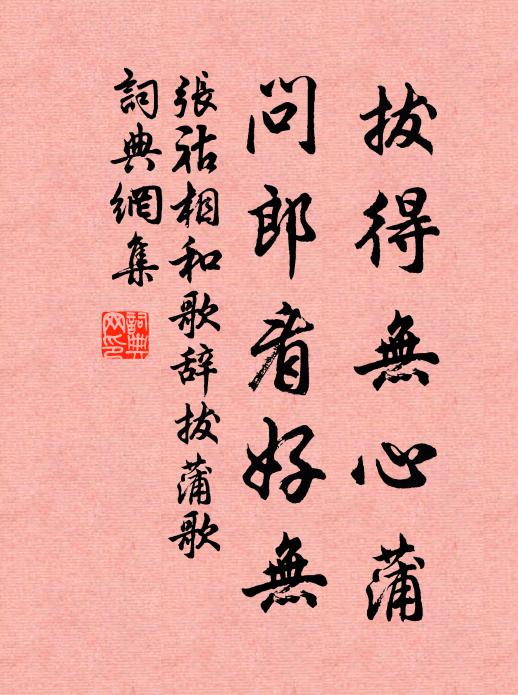 拔得無心蒲
問郎看好無
張祜相和歌辞拔蒲歌
詞典網集
詞典網印